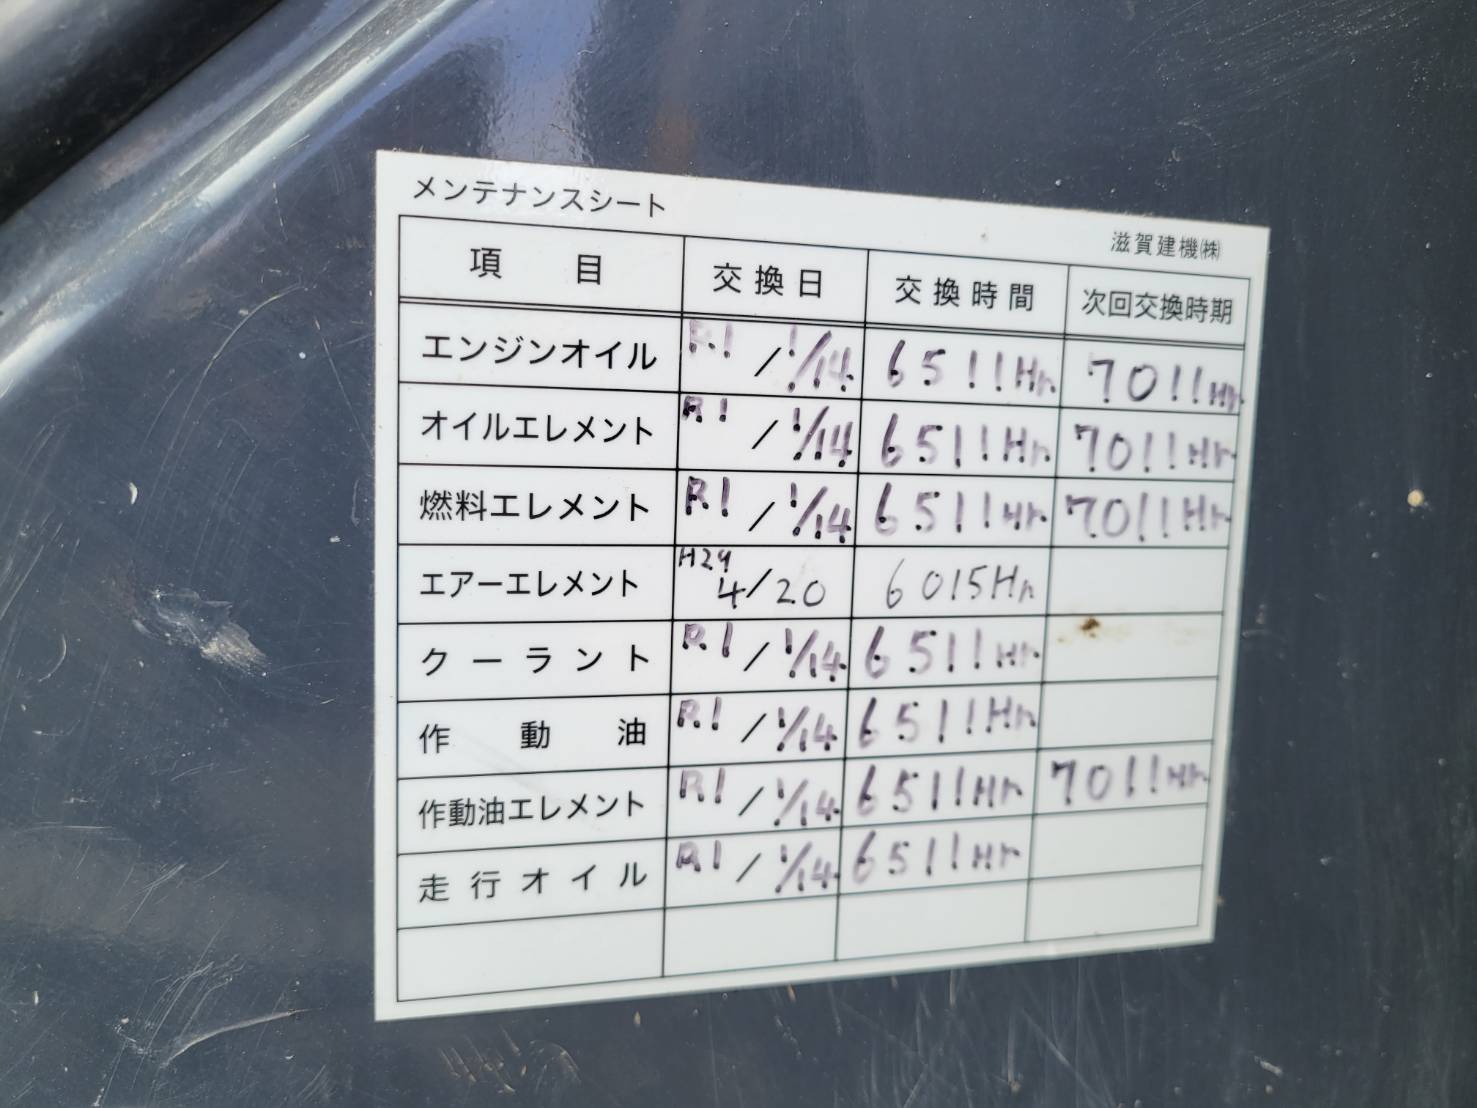 メンテナンスシート
滋賀建機㈱
項目 交換日 交換時間 次回交換時期
エンジンオイル R.1 / 1/14 6511Hr 7011Hr
オイルエレメント R1 / 1/14 6511Hr 7011Hr
燃料エレメント R1 / 1/14 6511Hr 7011Hr
エアーエレメント H29 4/20 6015Hr
クーラント R.1 / 1/14 6511Hr
作動油 R.1 / 1/14 6511Hr
作動油エレメント R1 / 1/14 6511Hr 7011Hr
走行オイル R1 / 1/14 6511Hr